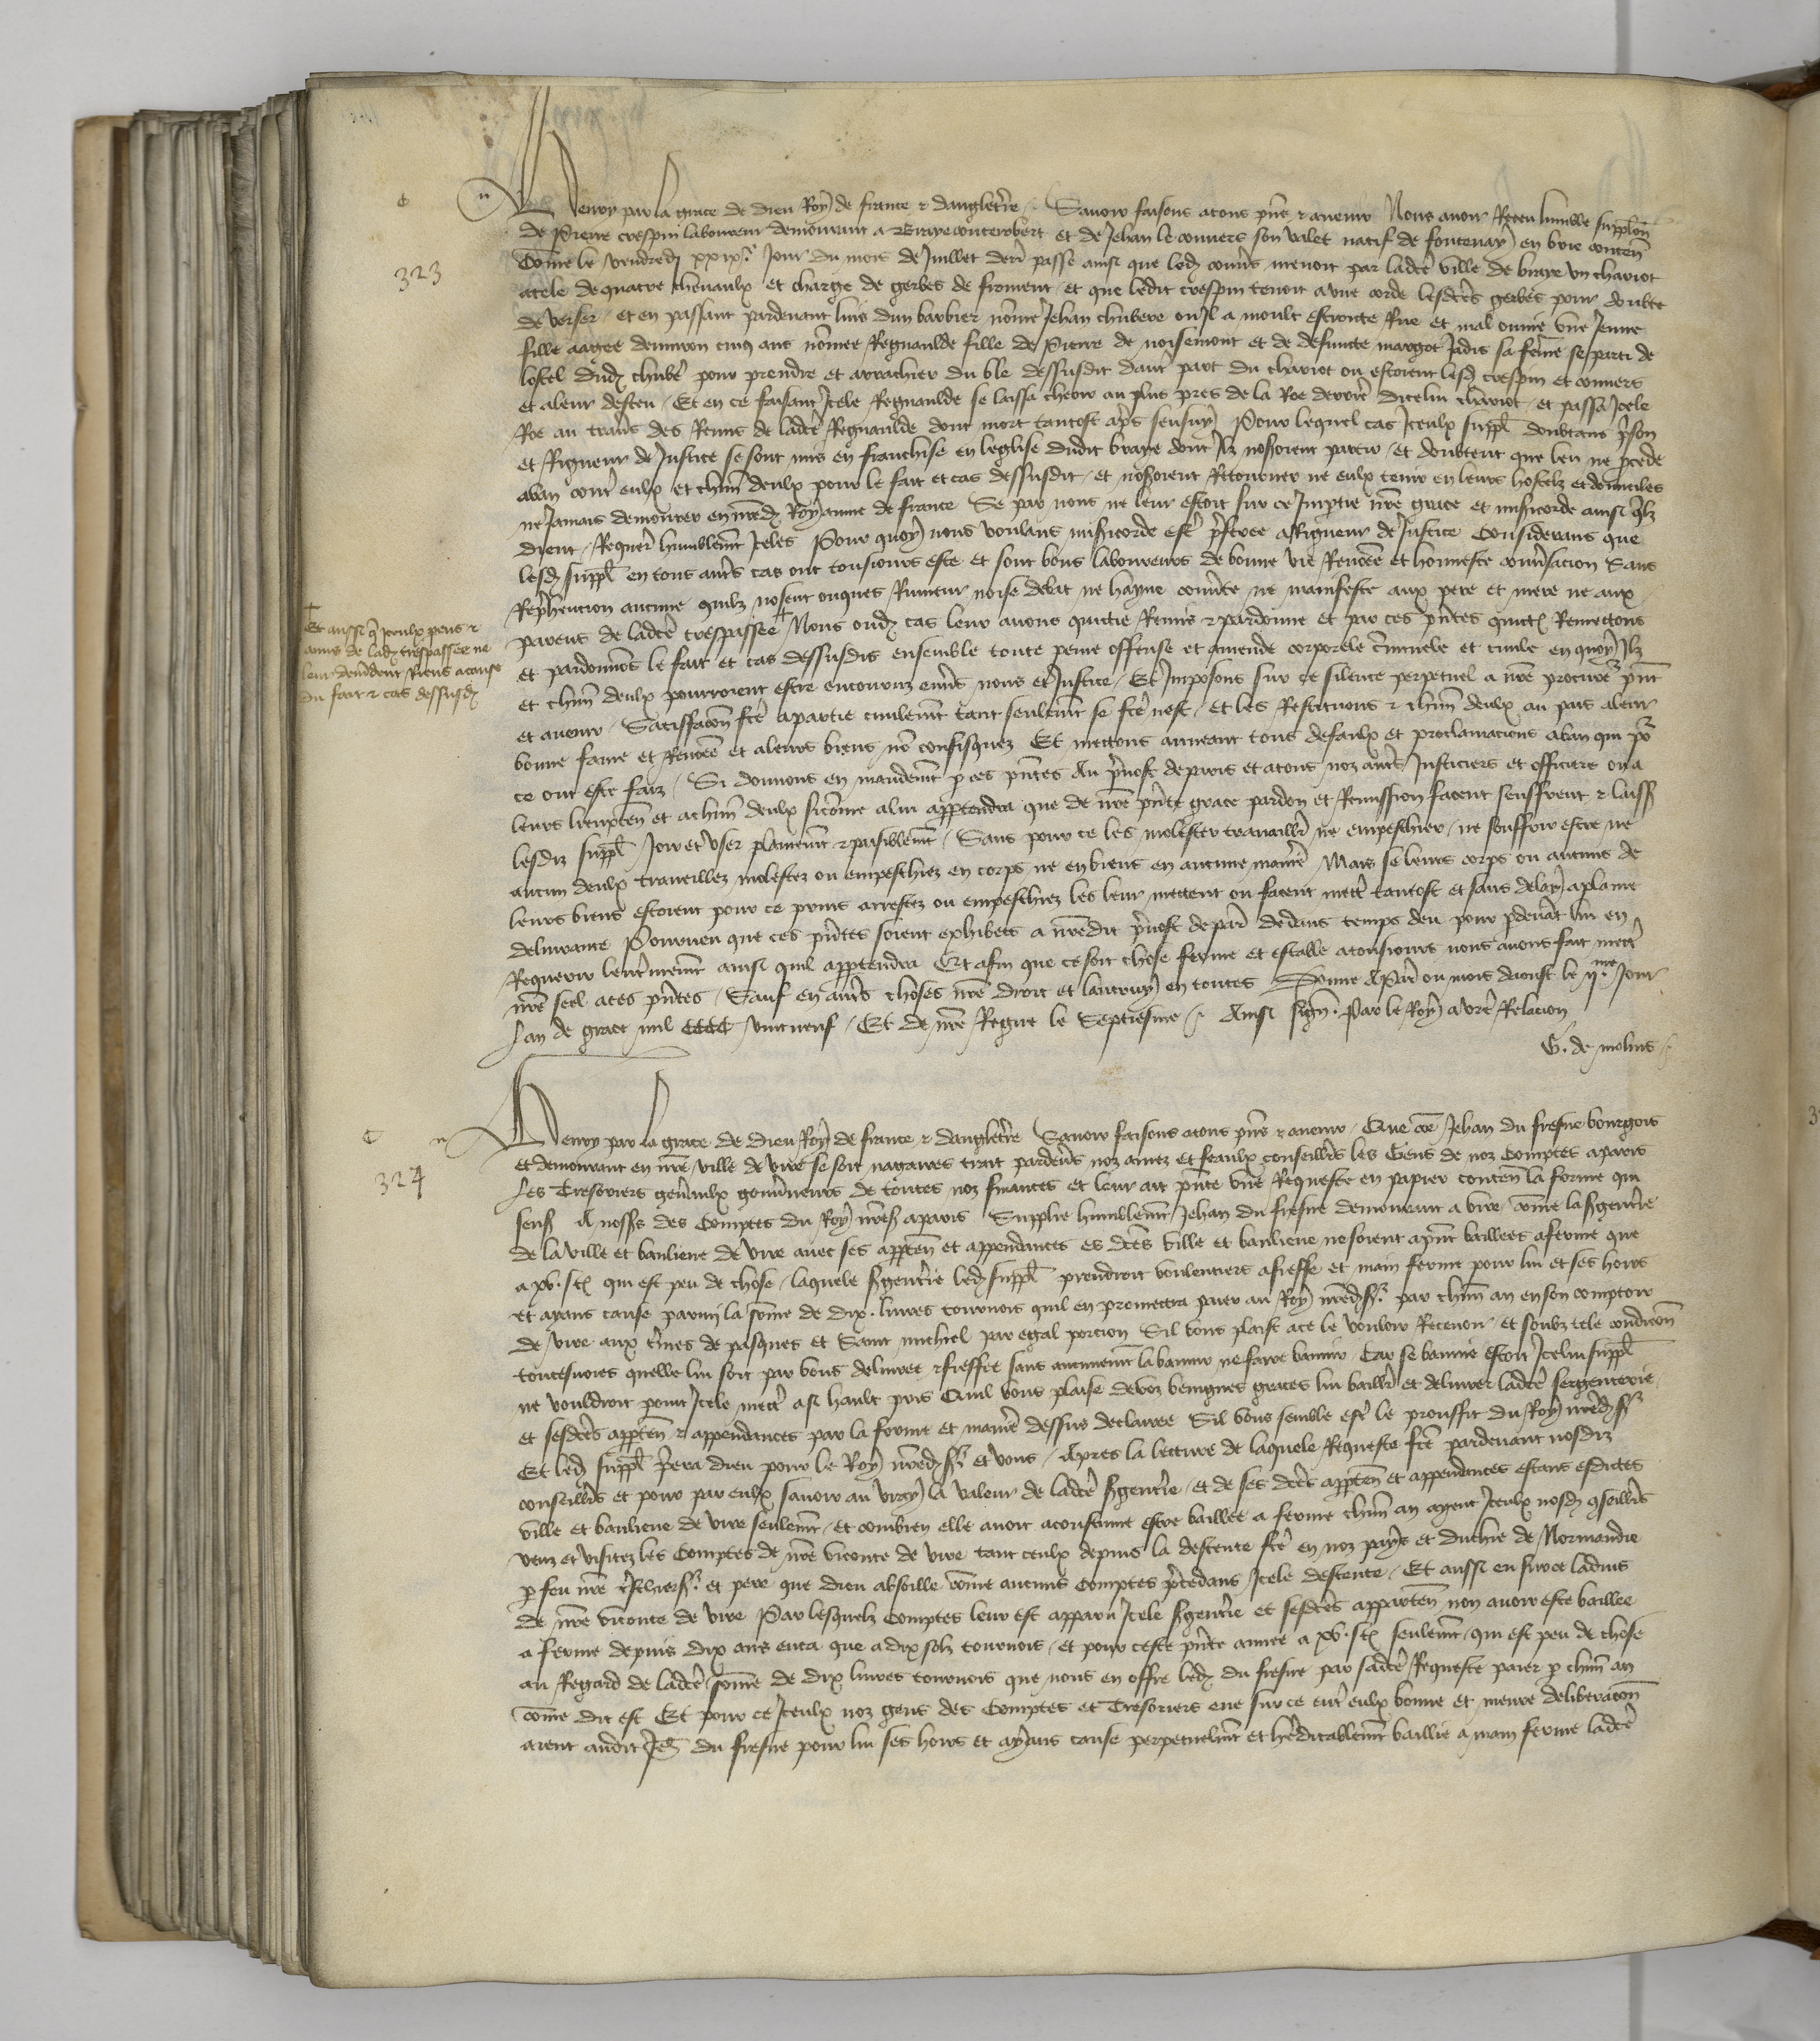 323
Henry par la grace de dieu Roy de france & dangleterre Savoir faisons a tous pñs & avenir Nous avoir Receu humble supplicõn
de Pierre crespin laboureur demourant a Braye conterobert et de Jehan le convers son valet natif de fontenay en brie conteñ
Cõme le vendredj xxixe Jour du mois de Juillet derñ passe ainsi que ledj convers menoit par ladcte ville de braye un chariot
atele de quatre chevaulx et charge de gerbes de froment et que ledit crespin tenoit a une corde lesdctes gerbes pour doubte
de verser et en passant pardevant luis dun barbier nõme Jehan ou Il a moult estroicte Rue et mal onnie une Jeune
fille aagee denviron cinq ans nõmee Regnaulde fille de Pierre de noisemont et de defuncte margot Jadis sa fẽme se parti de
lostel dudj pour prendre et arrachier du ble dessusdit dautre part du chariot ou estoient lesdj crespin et convers
et a leur desceu Et en ce faisant Icele Regnaulde se laissa cheoir au plus pres de la Roe derriere dicelui chariot et passa Icele
Roe au travers des Reins de ladcte Regnaulde dont mort tantost apres sensuy Pour lequel cas Iceulx suppl doubtans prison
et Rigueur de Justice se sont mis en franchise en leglise dudit braye dont Ilz nosoient partir et doubtent que len ne procede
a ban contre eulx et chũn deulx pour le fait et cas dessusdit et noseroient Retourner ne eulx tenir en leurs hostelz et domiciles
ne Jamais demourer en nr̃edj Royaume de france Se par nous ne leur estoit sur ce Impartie nr̃e grace et misericorde ainsi qlz
dient Requerñ humblemt Iceles Pour quoy nous voulans misericorde estre preferee a Rigueur de Justice Considerans que
lesdj suppl en tous autres cas ont tousiours este et sont bons laboureurs de bonne vie Renõmee et honneste conversacion Sans
Reprehencion aucune quilz nosent onques Rumeur noise debat ne hayne couverte ne manifeste aux pere et mere ne aux
parens de ladcte trespassee + Nous oudj cas leur avons quictie Remis & pardonne et par ces pñtes quictõ Remectons
+ Et aussi q̃ Iceulx parens &
amis de ladj trespassee ne
leur demãdent Riens a cause
du fait & cas dessusdj
et pardonnõs le fait et cas dessusdis ensemble toute peine offense et amende corporele crimĩnele et civile en quoy Ilz
et chũn deulx pourroient estre encouruz envers nous et Justice Et Imposons sur ce silence perpetuel a nr̃e procureur pñt
et avenir Satisfacõn fcte a partie civilemt tant seulemt se fcte nest et les Restituons & chũn deulx au pais a leur
bonne fame et Renõmee et a leurs biens nõ confisquez Et mettons au neant tous defaulx et proclamacions a ban qui por
ce ont este faiz Si donnons en mandemt p ces pñtes Au prevost de paris et a tous noz autres Justiciers et officiers ou a
leurs lieuxteñ et a chũn deulx sicõme a lui appartendra que de nr̃e pñte grace pardon et Remission facent seuffrent & laissẽt
lesdiz suppl Joir et user plainemt & paisiblemt Sans pour ce les molester travaillier ne empeschier ne souffrir estre ne
aucun deulx travaillez molestez ou empeschiez en corps ne en biens en aucune maniere Mais se leurs corps ou aucuns de
leurs biens estoient pour ce prins arrestez ou empeschiez les leur mettent ou facent mettre tantost et sans delay a plaine
delivrance Pourveu que ces pñtes soient exhibees a nr̃edit prevost de paris dedans temps deu pour pdevãt lui en
Requerir lenterinemt ainsi quil appartendra Et afin que ce soit chose ferme et estable a tousiours nous avons fait mettre
nr̃e seel a ces pñtes Sauf en autres choses nr̃e droit et lautruy en toutes Donne A Paris ou mois daoust le IIme Jour
Lan de grace mil CCCC vint neuf Et de nr̃e Regne le Septiesme Ainsi signe Par le Roy a vr̃e Relacion
G. de molins
324
Henry par la grace de Dieu Roy de france & dangleterre Savoir faisons a tous pñs & avenir Que cõe Jehan du fresne bourgois
et demourant en nr̃e ville de vire se soit nagaires trait pardevers noz amez et feaulx conseilliers les Gens de noz Comptes a paris
Les Tresoriers generaulx gouverneurs de toutes noz finances et leur ait pñte une Requeste en papier conteñ la forme qui
sensj A nossrs des Comptes du Roy nr̃esj a paris Supplie humblemt Jehan du fresne demourant a vire cõme la sergenterie
de la ville et banlieue de vire avec ses apparteñ et appendances es dctes ville et banlieue ne soient a pñt baillees a ferme que
a xv.s.tj qui est peu de chose laquele sergenterie ledj suppl prendroit voulentiers a fieffe et main ferme pour lui et ses hoirs
et ayans cause parmi la sõme de dix livres tournois quil en promettra paier au Roy nr̃edjsr par chũn an en son comptoir
de vire aux termes de pasques et Saint michiel par egal porcion Sil vous plaist a ce le vouloir Recevoir et soubz tele condicõn
toutesvoies quelle lui soit par vous delivree & fieffee sans aucunemt la bannir ne faire bannir Car se bannie estoit Icelui suppl
ne vouldroit point Icele mettre a si hault pris Quil vous plaise de voz benignes graces lui baillier et delivrer ladcte sergenterie
et sesdctes apparteñ & appendances par la forme et maniere dessus declairee Sil vous semble estre le prouffit du Roy nr̃edjsr
Et ledj suppl priera dieu pour le Roy nr̃edjsr et vous Apres la lecture de laquele Requeste fcte pardevant nosdiz
conseilliers et pour par eulx savoir au vray la valeur de ladcte sergenterie et de ses dctes apparteñ et appendances estans esdictes
ville et banlieue de vire seulemt et combien elle avoit acoustume estre baillee a ferme chũn an ayent Iceulx nosdj conseilliers
veuz et visitez les Comptes de nr̃e viconte de vire tant ceulx depuis la descente fcte en noz pays et duchie de Normandie
p feu nr̃e treschiersr et pere que Dieu absoille cõme aucuns Comptes precedans Icele descente Et aussi en sur ce ladvis
de nr̃e viconte de vire Par lesquelz Comptes leur est apparu Icele sergenterie et sesdctes apparteñ non avoir este baillee
a ferme depuis dix ans enca que a dix solz tournois et pour ceste pñte annee a xv.s.tj seulemt qui est peu de chose
au Regard de ladcte sõme de dix livres tournois que nous en offre ledj du fresne par sadcte Requeste paier p chũn an
cõme dit est Et pour ce Iceulx noz gens des Comptes et Tresoriers eue sur ce entre eulx bonne et meure deliberacõn
aient audit Jeh du fresne pour lui ses hoirs et ayans cause perpetuelmt et hereditablemt baillie a main ferme ladcte